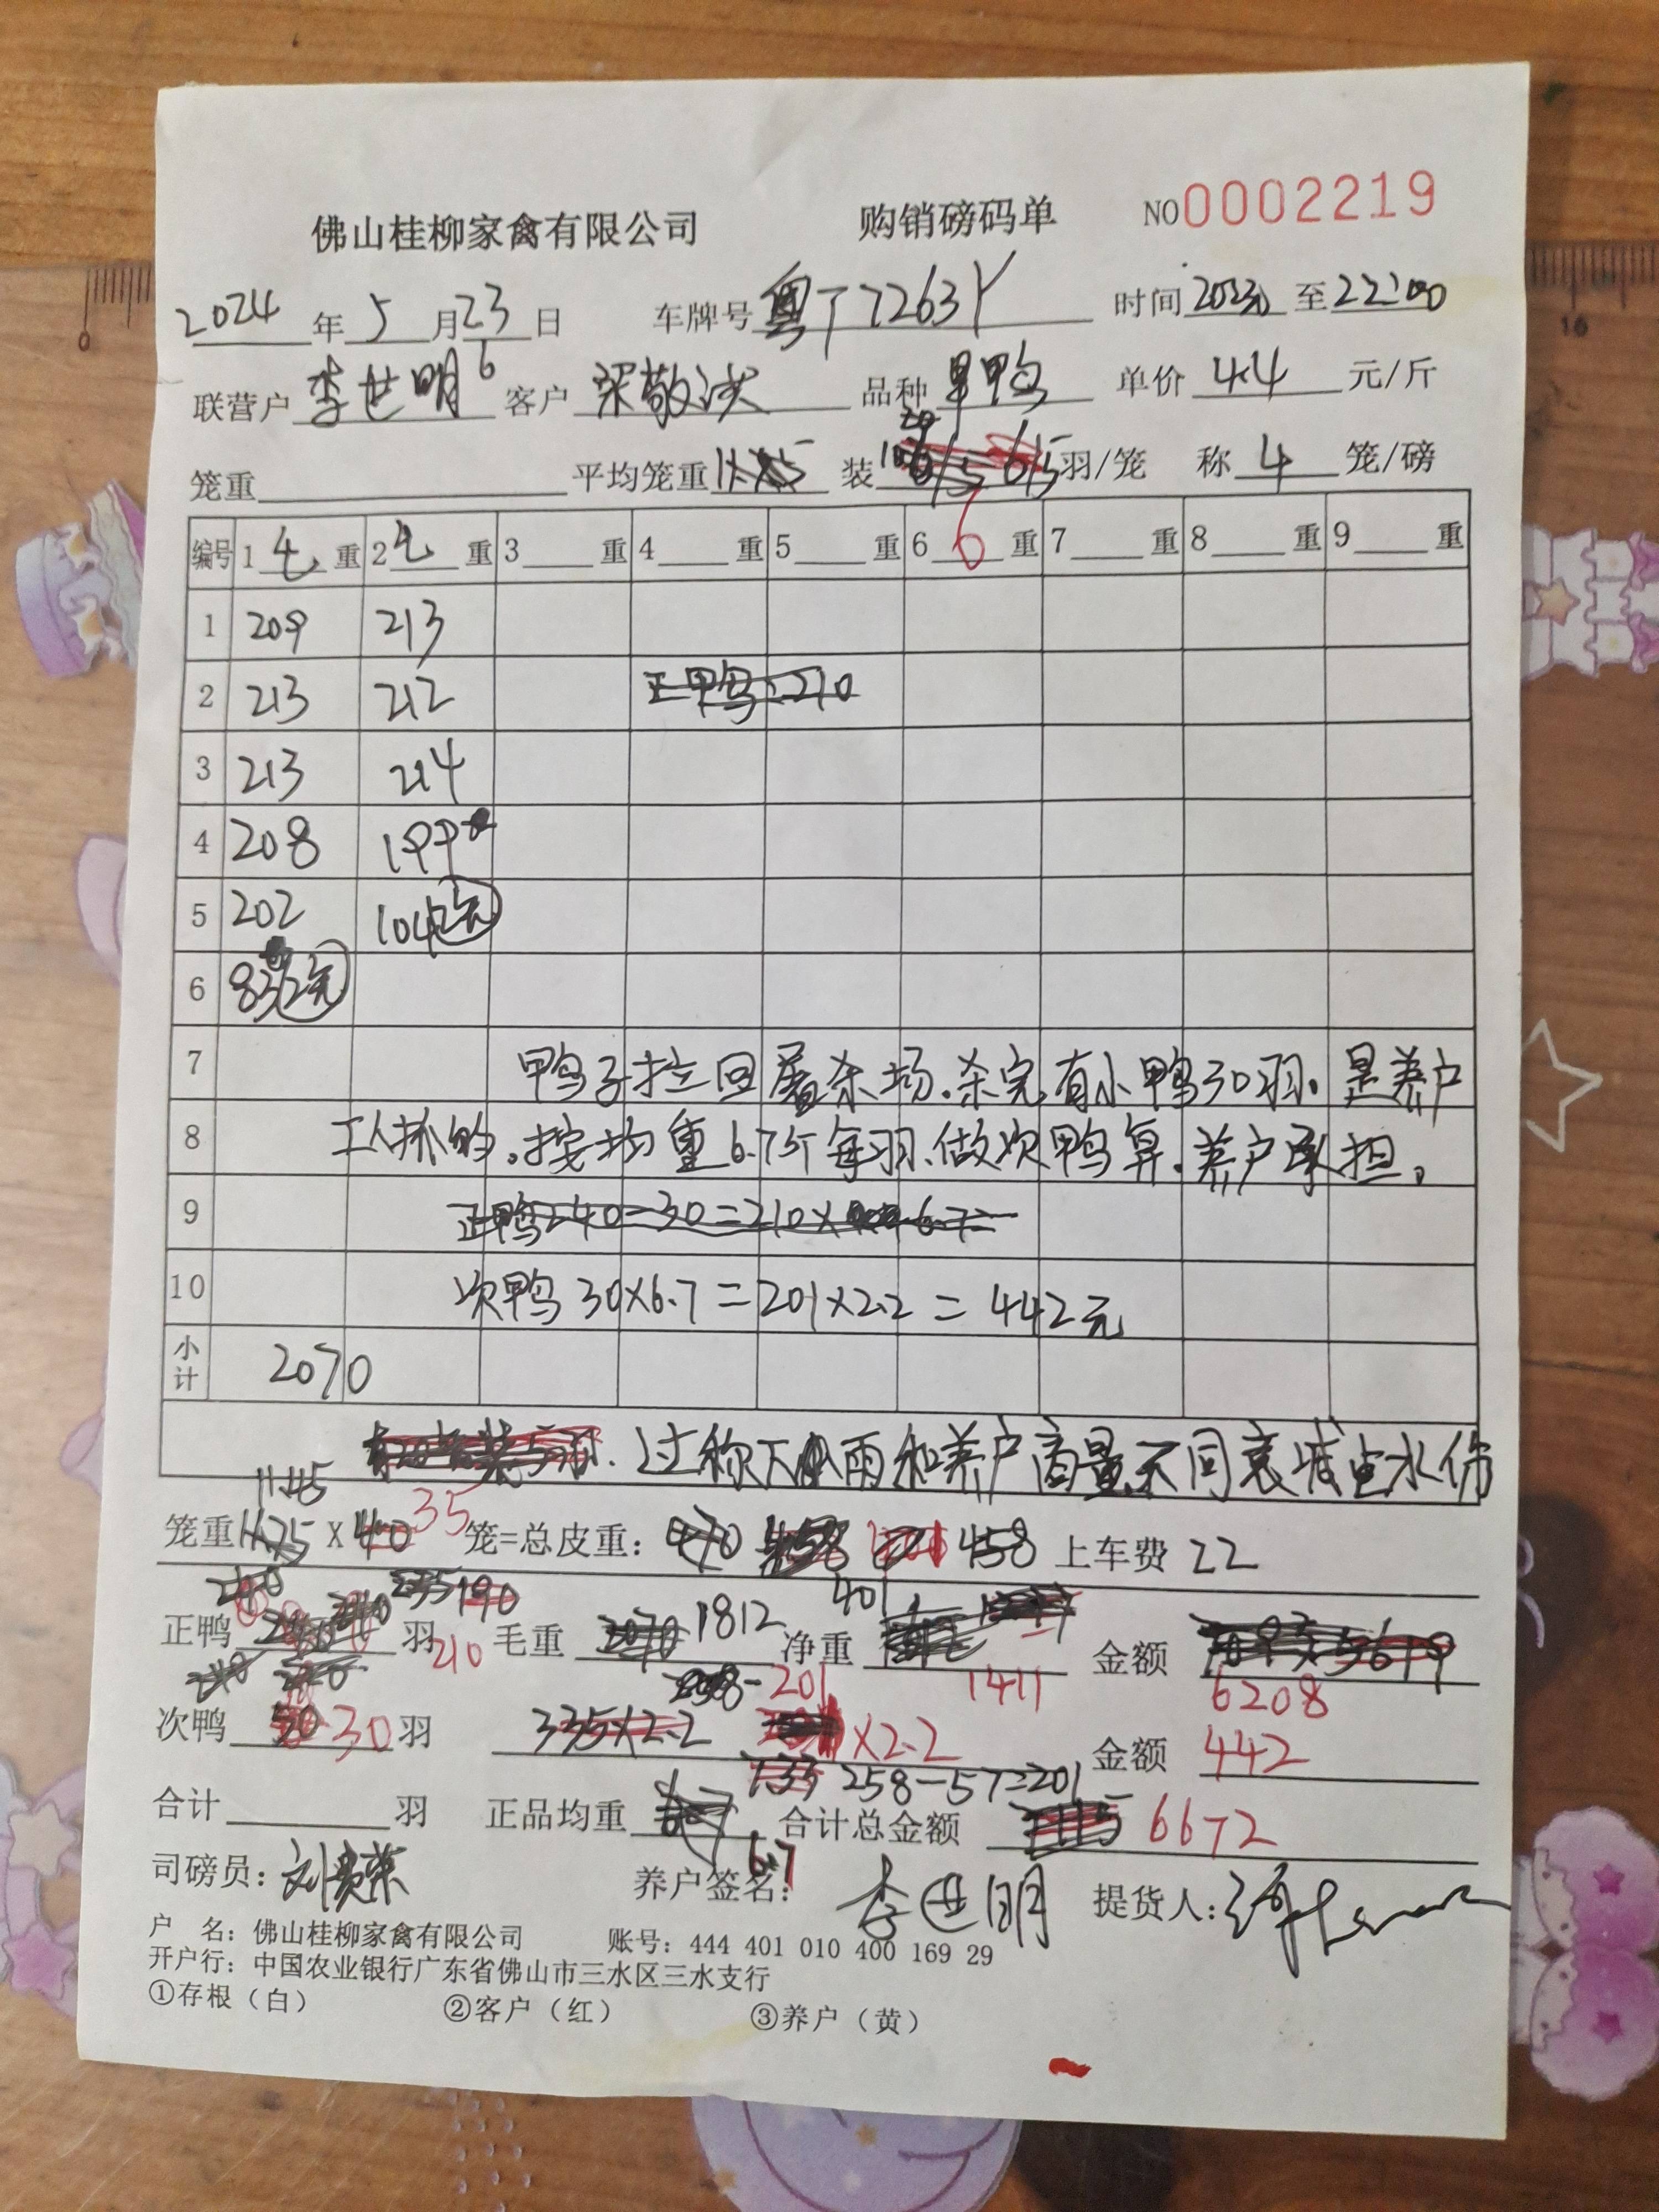 佛山桂柳家禽有限公司 购销磅码单 NO0002219
2024年5月23日 车牌号 粤T7263Y 时间 至22:00
联营户 李世明6 客户 梁敬洪 品种 单价 4.4 元/斤
笼重 平均笼重 装 6/5 羽/笼 称 4 笼/磅
编号 1 毛 重 2 毛 重 3 重 4 重 5 重 6 6 重 7 重 8 重 9 重
1 209 213
2 213 212 正鸭:210
3 213 214
4 208 199
5 202 104 2元
6 83 2元
7 鸭子拉回屠杀场.杀完.有小鸭30羽.是养户
8 工人抓的.按均重6.7斤每羽.做次鸭算.养户承担.
9 正鸭240-30=210X 6.7=
10 次鸭30X6.7=201X2.2=442元
小计 2070
过称下雨和养户商量不同衰减
11.45
笼重 X 40 35 笼=总皮重: 470 458 上车费 22
240 235 190 401
正鸭 羽 210 毛重 2070 1812 净重 金额
201 1411 6208
次鸭 50 30 羽 335X2.2 X2.2 金额 442
133 258-57=201
合计 羽 正品均重 合计总金额 7115 6672
6.7
司磅员: 养户签名: 李世明 提货人:
户 名: 佛山桂柳家禽有限公司 账号: 444 401 010 400 169 29
开户行: 中国农业银行广东省佛山市三水区三水支行
①存根(白) ②客户(红) ③养户(黄)